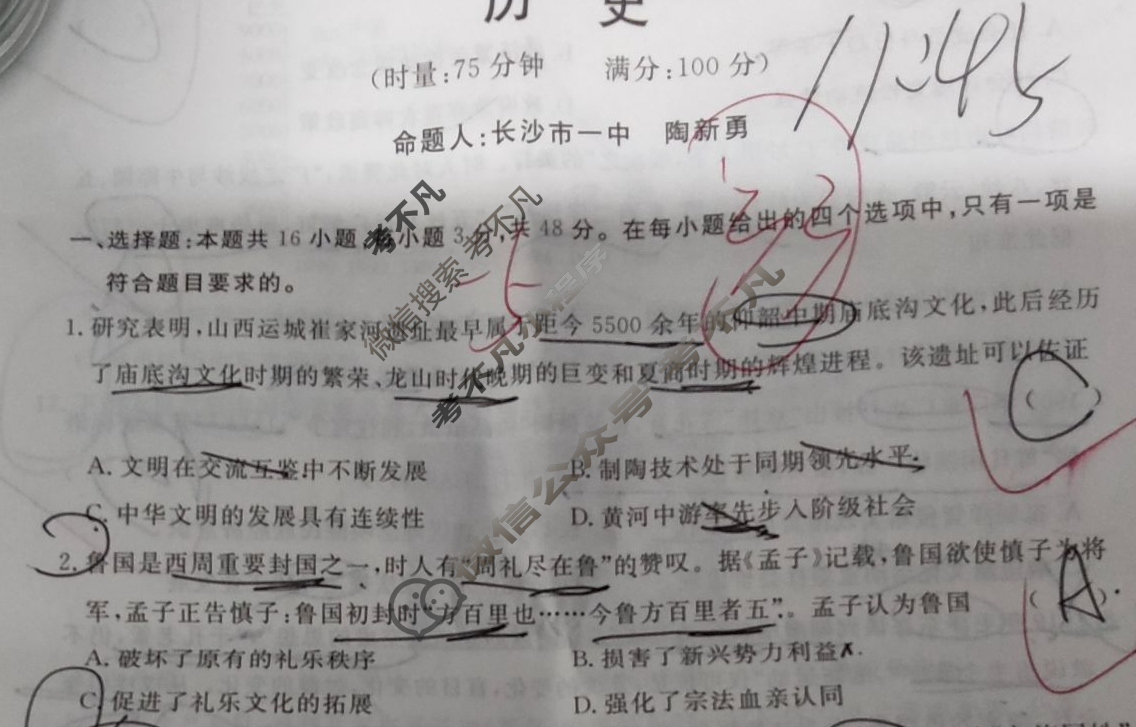 历 史
(时量:75分钟 满分:100分)
11:45
命题人:长沙市一中 陶新勇
一、选择题:本题共16小题,每小题3分,共48分。在每小题给出的四个选项中,只有一项是
符合题目要求的。
1.研究表明,山西运城崔家河遗址最早属于距今5500余年的仰韶中期庙底沟文化,此后经历
了庙底沟文化时期的繁荣、龙山时代晚期的巨变和夏商时期的辉煌进程。该遗址可以佐证
( )
A.文明在交流互鉴中不断发展 B.制陶技术处于同期领先水平
C.中华文明的发展具有连续性 D.黄河中游率先步入阶级社会
2.鲁国是西周重要封国之一,时人有“周礼尽在鲁”的赞叹。据《孟子》记载,鲁国欲使慎子为将
军,孟子正告慎子:鲁国初封时“方百里也……今鲁方百里者五”。孟子认为鲁国 (A)
A.破坏了原有的礼乐秩序 B.损害了新兴势力利益
C.促进了礼乐文化的拓展 D.强化了宗法血亲认同
考不凡
微信搜索 考不凡
考不凡 小程序
微信公众号 考不凡